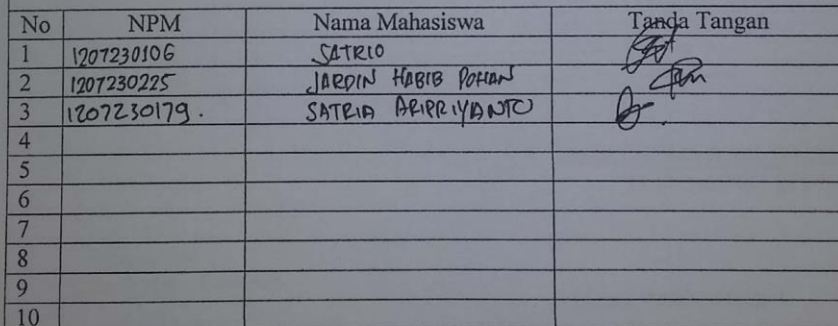 No NPM Nama Mahasiswa Tanda Tangan
1 1207230106 SATRIO
2 1207230225 JARDIN HABIB POHAN
3 1207230179. SATRIA ARIPRIYANTO
4
5
6
7
8
9
10